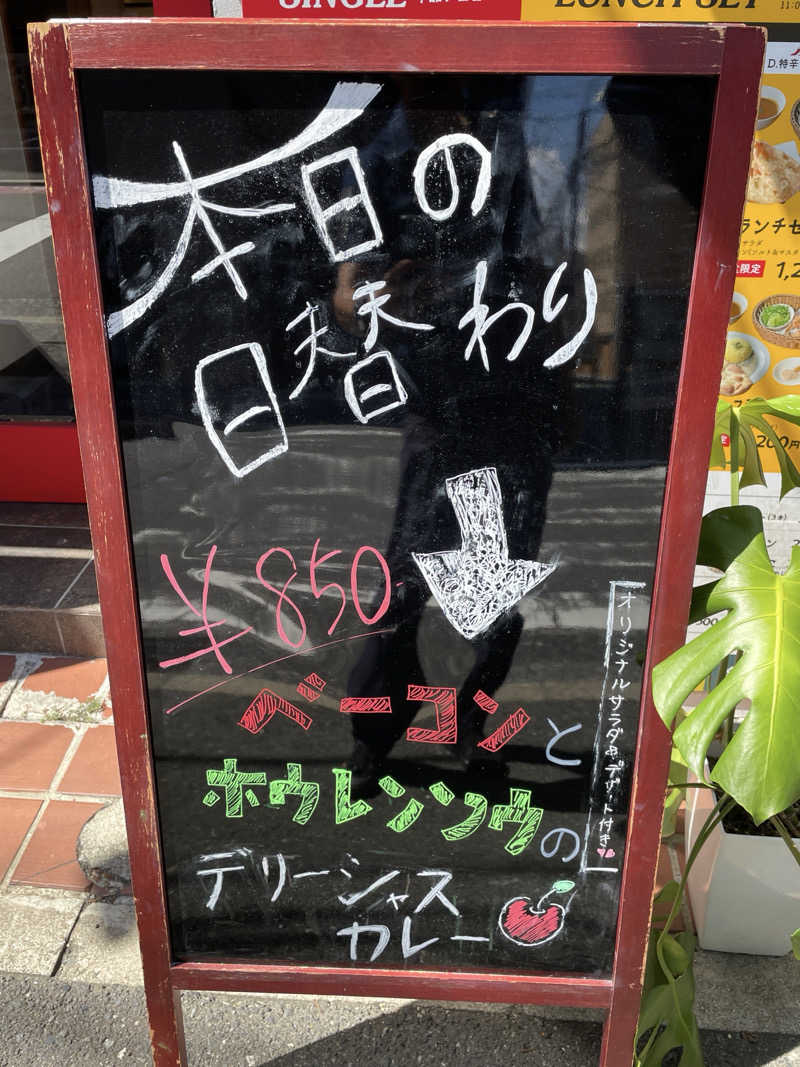 SINGLE
LUNCH SET
11:0
D.特辛
本日の
日替わり
¥850-
ベーコンと
ホウレンソウの
デリーシャス
カレー
オリジナルサラダ&デザート付き
ランチセ
サラダ
1,2
200円